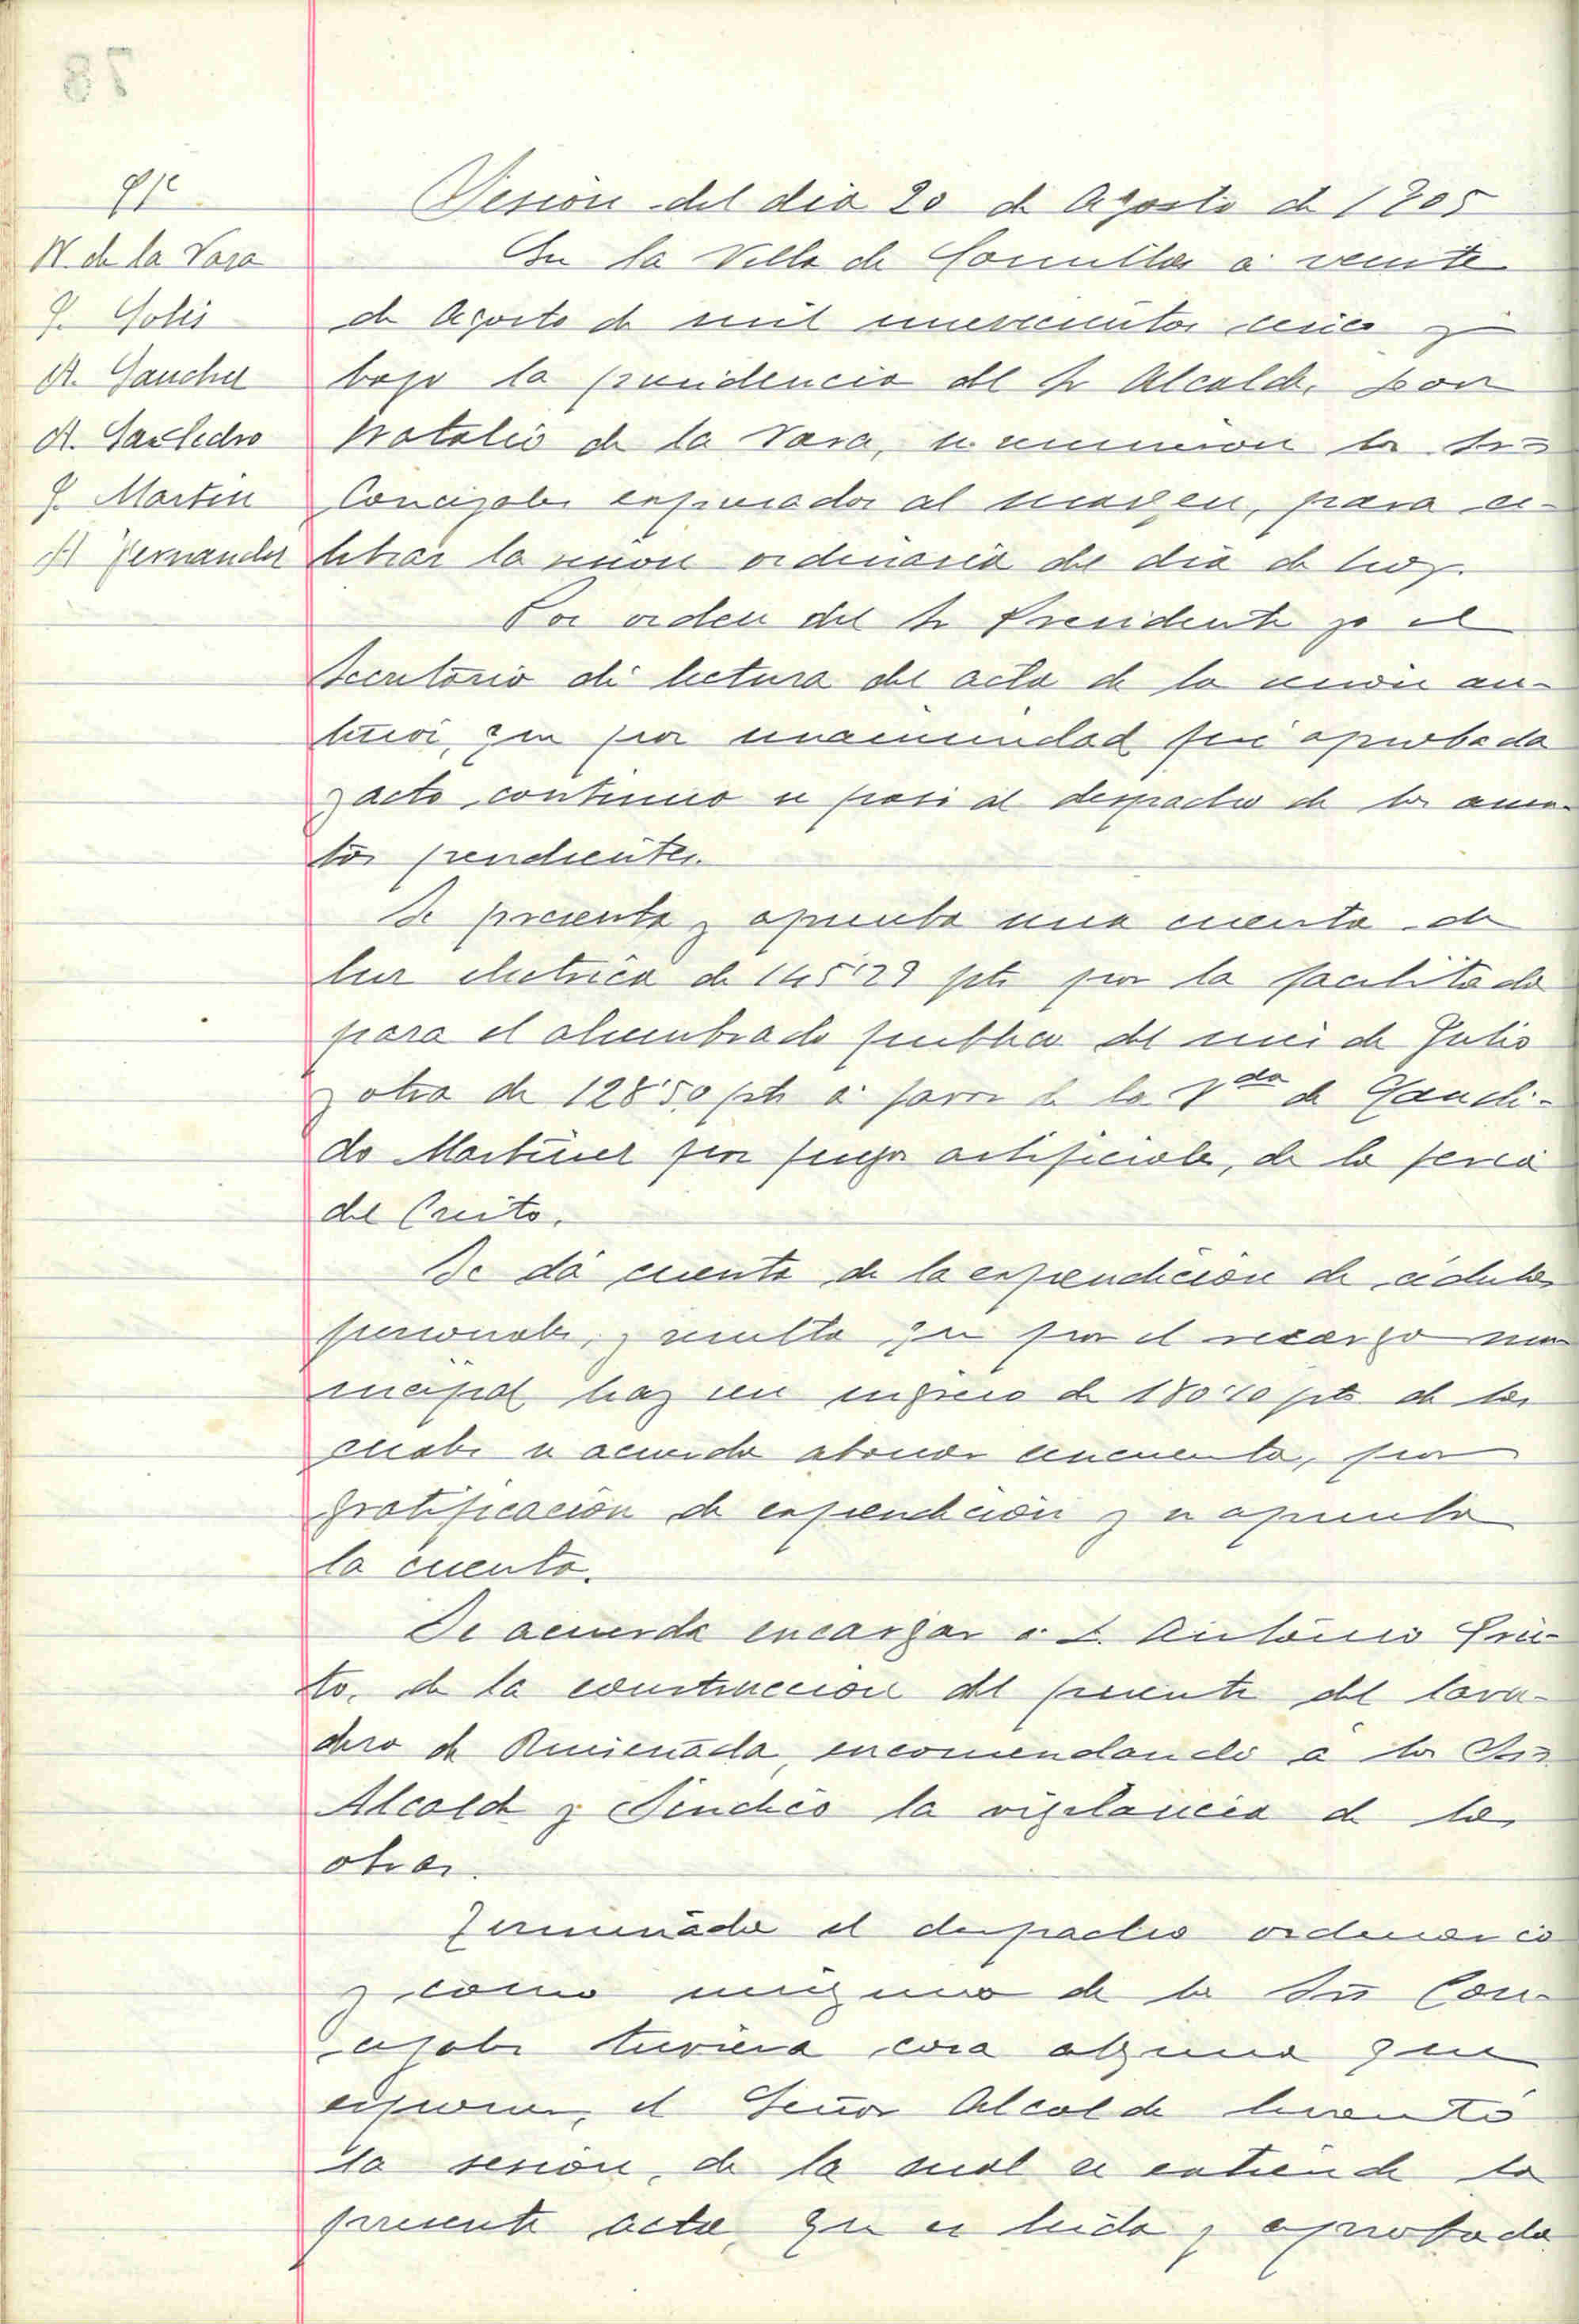 Pte
N. de la Vara
J. Solis
A. Sanchez
A. San Pedro
J. Martin
A Fernandez
Sesion del dia 20 de Agosto de 1905
En la Villa de Comillas á veinte
de Agosto de mil novecientos cinco y
bajo la presidencia del Sr Alcalde, Don
Natalio de la Vara, se reunieron los Sres
Concejales expresados al margen, para ce-
lebrar la sesion ordinaria del dia de hoy.
Por orden del Sr Presidente yo el
Secretario dí lectura del acta de la sesión an-
terior, que por unanimidad fué aprobada
y acto continuo se pasó al despacho de los asun-
tos pendientes.
Se presenta y aprueba una cuenta de
luz electrica de 145'29 pts por la facilitada
para el alumbrado publico del mes de Julio
y otra de 128'50 pts á favor de la Vda de Candi-
do Martinez por fuegos artificiales, de la feria
del Cristo.
Se dá cuenta de la expendición de cédulas
personales, y resulta que por el recargo mu-
nicipal hay un ingreso de 180'10 pts de las
cuales se acuerda abonar cincuenta, por
gratificación de expendición y se aprueba
la cuenta.
Se acuerda encargar á D. Antonio Prie-
to, de la construccion del puente del lava-
dero de Rucienada, encomendando á los Sres
Alcalde y Sindico la vigilancia de las
obras.
Terminado el despacho ordinario
y como ninguno de los Sres Con-
cejales tuviera cosa alguna que
exponer, el Señor Alcalde levantó
la sesión, de la cual se extiende la
presente acta, que es leida y aprobada